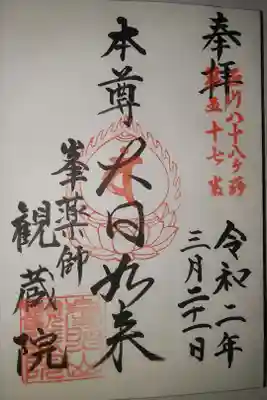 奉拝
玉川八十八ヶ所
第五十七番
令和二年
三月二十一日
本尊 大日如来
峯薬師
観蔵院